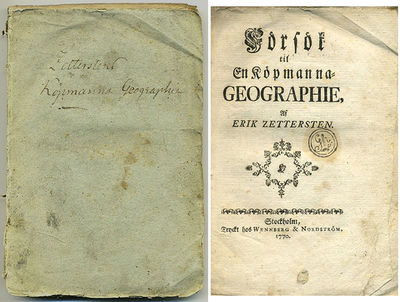 Zetterstens
Köpmanna Geographie
Försök
til
En Köpmanna-
GEOGRAPHIE,
Af
ERIK ZETTERSTEN.
Stockholm,
Tryckt hos WENNBERG & NORDSTRÖM,
1770.